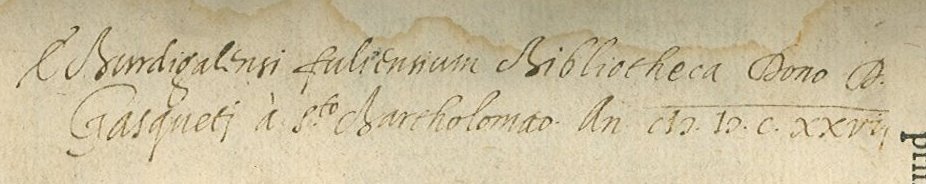 E Burdigalensi fuliensium Bibliotheca Dono D.
Gasquetj à S.to Bartholomæo An cIɔ. Iɔ. c. xxvij